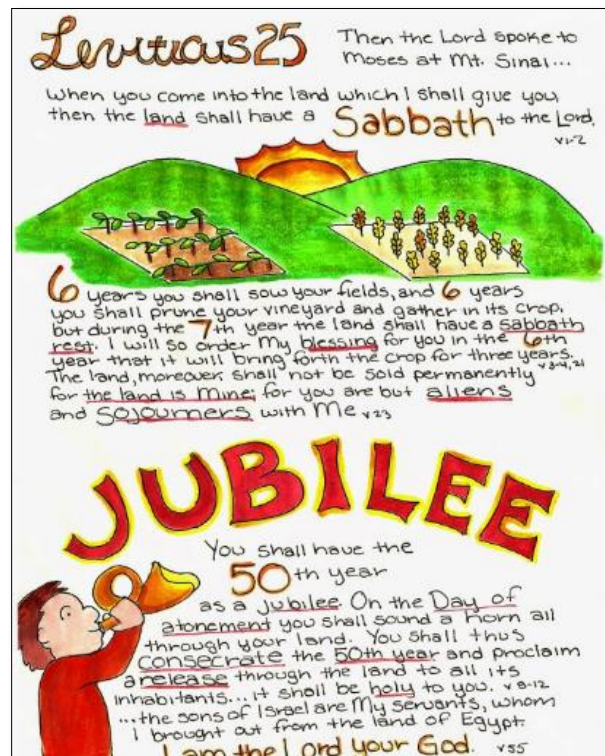 Leviticus 25
Then the Lord spoke to
Moses at Mt. Sinai...
When you come into the land which I shall give you,
then the land shall have a Sabbath to the Lord.
v1-2
6 years you shall sow your fields, and 6 years
you shall prune your vineyard and gather in its crop,
but during the 7th year the land shall have a sabbath
rest. I will so order My blessing for you in the 6th
year that it will bring forth the crop for three years.
v3-4, 21
The land, moreover, shall not be sold permanently
for the land is Mine; for you are but aliens
and Sojourners with Me v23
JUBILEE
You shall have the
50th year
as a Jubilee. On the Day of
atonement you shall sound a horn all
through your land. You shall thus
consecrate the 50th year and proclaim
a release through the land to all its
inhabitants... it shall be holy to you. v 8-12
...the sons of Israel are My servants, whom
I brought out from the land of Egypt.
I am the Lord your God. v55